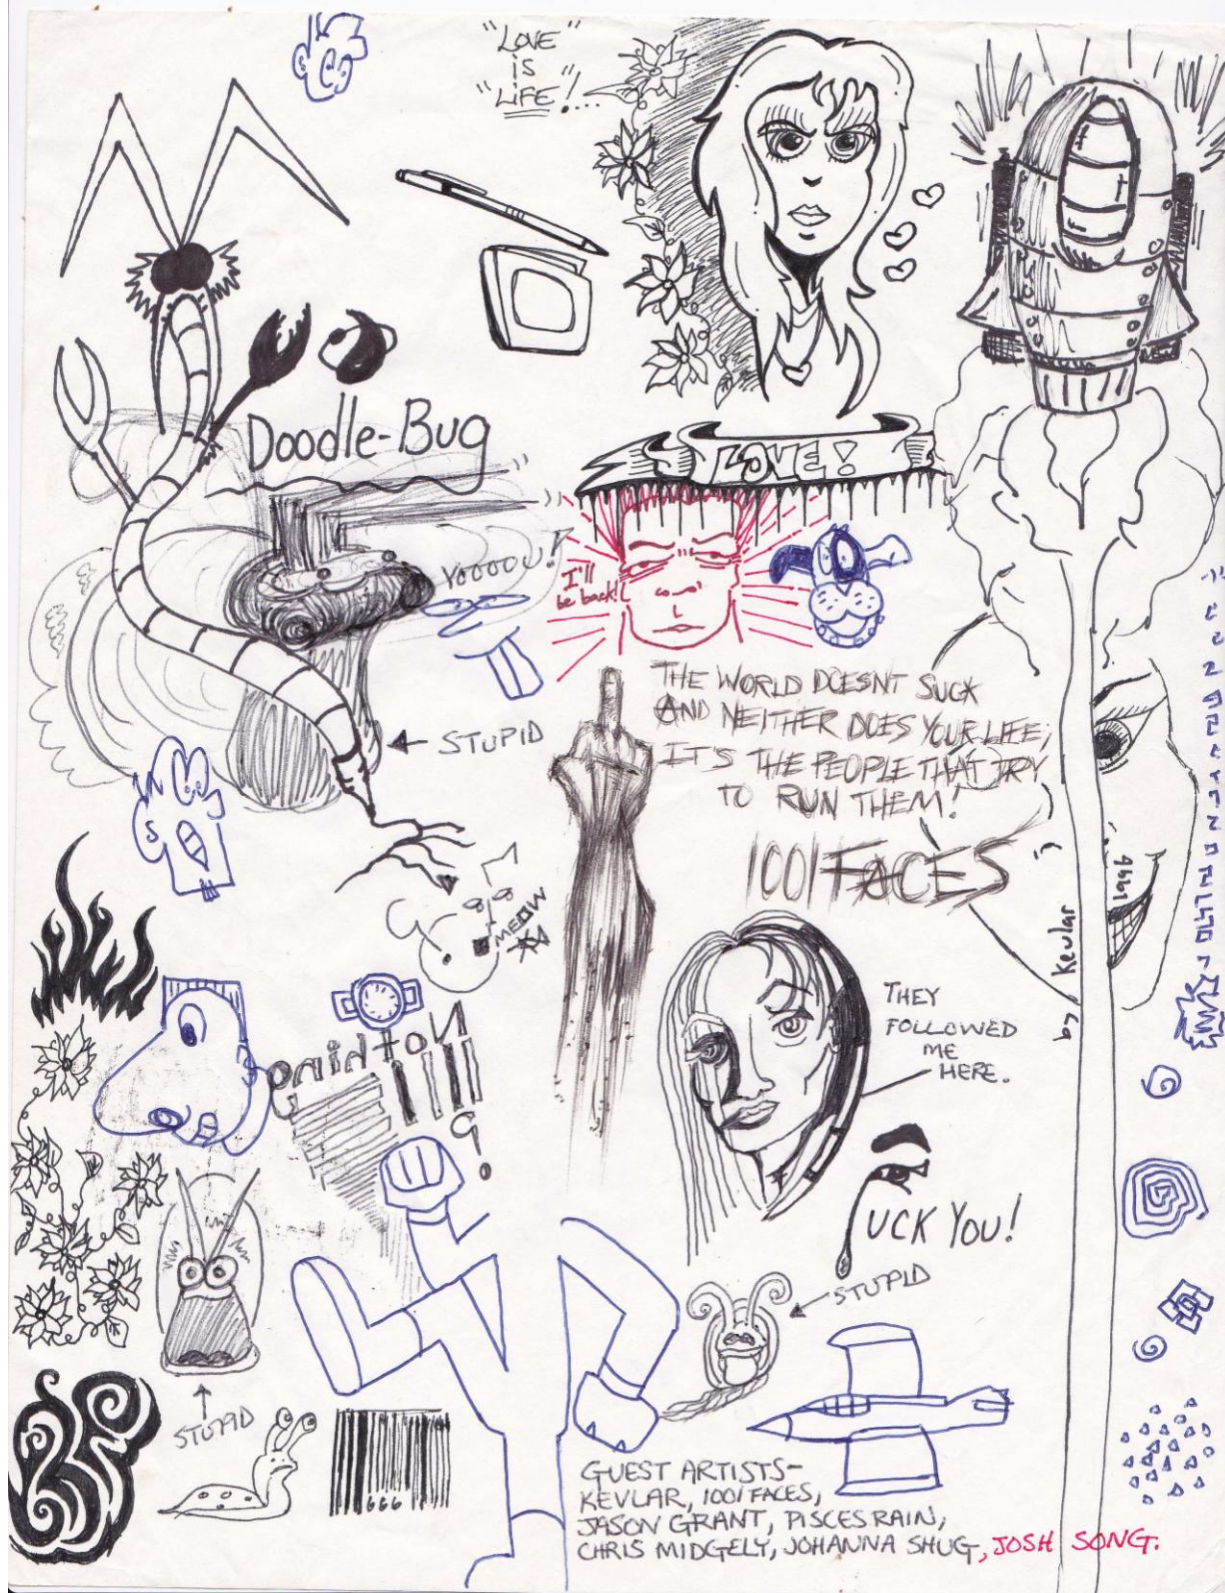 "LOVE"
is
"LIFE"!...
Doodle-Bug
LOVE!
YOOOOU!
I'll
be back!
STUPID
THE WORLD DOESNT SUCK
AND NEITHER DOES YOUR LIFE;
IT'S THE PEOPLE THAT TRY
TO RUN THEM!
1001 FACES
MEOW
by Kevlar
1996
THEY
FOLLOWED
ME
HERE.
UCK YOU!
STUPID
STUPID
666
GUEST ARTISTS-
KEVLAR, 1001 FACES,
JASON GRANT, PISCES RAIN,
CHRIS MIDGELY, JOHANNA SHUG, JOSH SONG.